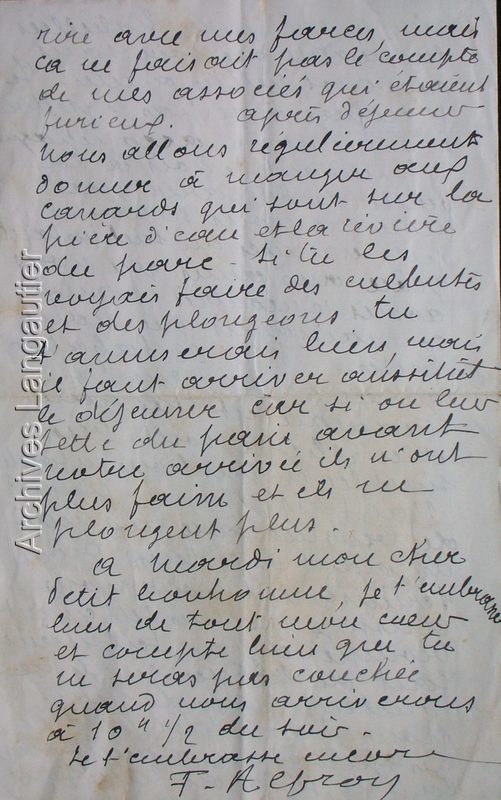 rire avec mes farces, mais
ça ne faisait pas le compte
de mes associés qui étaient
furieux. après déjeuner
nous allons régulièrement
donner à manger aux
canards qui sont sur la
pièce d'eau et la rivière
du parc. Si tu les
voyais faire des culbutes
et des plongeons tu
t'amuserais bien, mais
il faut arriver aussitôt
le déjeuner car si on leur
jette du pain avant
notre arrivée ils n'ont
plus faim et ils ne
plongent plus.
a mardi mon cher
petit bonhomme, je t'embrasse
bien de tout mon cœur
et compte bien que tu
ne seras pas couchée
quand nous arriverons
à 10 h 1/2 du soir.
Je t'embrasse encore
Archives Langautier